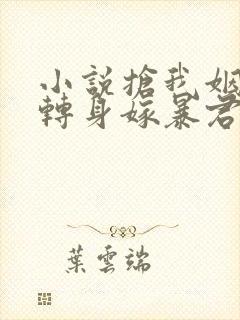 小説搶我姻
轉身嫁暴君
葉雲端